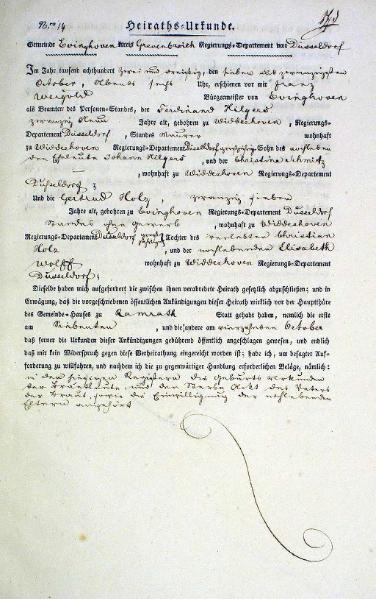 Nro 14
Heiraths-Urkunde.
Gemeinde Evinghoven Kreis Grevenbroich Regierungs-Departement von Düsseldorf
Im Jahr tausend achthundert zwei und dreißig, den sieben und zwanzigsten
October, Abends fünf Uhr, erschienen vor mir Franz
Weigold Bürgermeister von Evinghoven
als Beamten des Personen-Standes, der Ferdinand Hilgers
zwanzig Neun Jahre alt, gebohren zu Widdeshoven, Regierungs-
Departement Düsseldorf, Standes Maurer wohnhaft
zu Widdeshoven Regierungs-Departement Düsseldorf Sohn des
der Eheleute Johann Hilgers, und der Christina Schmitz
, wohnhaft zu Widdeshoven Regierungs-Departement
Düsseldorf;
Und die Gertrud Holz, zwanzig sieben
Jahre alt, gebohren zu Evinghoven Regierungs-Departement Düsseldorf
Standes ohne Gewerb, wohnhaft zu Widdeshoven
Regierungs-Departement Düsseldorf Tochter des verlebten Christian
Holz, und der Elisabeth
Wolff wohnhaft zu Widdeshoven Regierungs-Departement
Düsseldorf;
Dieselbe haben mich aufgefordert die zwischen ihnen verabredete Heirath gesetzlich abzuschließen; und in
Erwägung, daß die vorgeschriebenen öffentlichen Ankündigungen dieser Heirath wirklich vor der Hauptthüre
des Gemeinde-Hauses zu Ramrath Statt gehabt haben, nemlich die erste
am Siebenten, und die andere am vierzehnten October
daß ferner die Urkunden dieser Ankündigungen gebührend öffentlich angeschlagen gewesen, und endlich
daß mir kein Widerspruch gegen diese Verheirathung eingereicht worden ist; habe ich, um besagter Auf-
forderung zu willfahren, und nachdem ich die zu gegenwärtiger Handlung erforderlichen Beläge, nämlich:
in den hiesigen Registern die Geburts Urkunden
der Brautleute und den Sterbe Act des Vaters
der Braut, sowie die Einwilligung der
Eltern